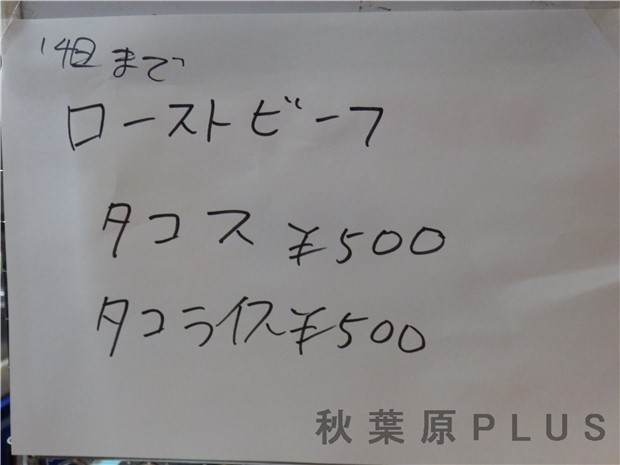 14日まで
ローストビーフ
タコス ¥500
タコライス¥500
秋葉原PLUS